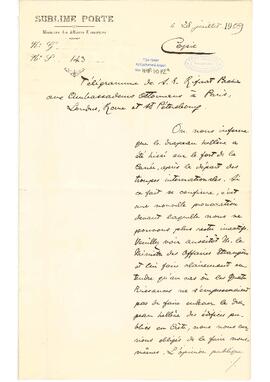 SUBLIME PORTE
Ministère des Affaires Etrangères
le 28 juillet 1909
Copie
No. G.
No. P. 143
Télégramme de S. E. Rifaat Pacha
aux Ambassadeurs Ottomans à Paris,
Londres, Rome et St Pétersbourg
On nous informe
que le drapeau hellène a
été hissé sur le fort de la
Canée, après le départ des
troupes internationales. Si
ce fait se confirme, c'est
une nouvelle provocation
devant laquelle nous ne
pouvons plus rester inactifs.
Veuillez voir aussitôt M. le
Ministre des affaires étrangères
et lui faire clairement en-
tendre qu'au cas où les Quatre
Puissances ne s'empresseraient
pas de faire enlever le dra-
peau hellène des édifices pu-
bliés en Crète, nous nous ver-
rions obligés de le faire nous-
mêmes. L'opinion publique